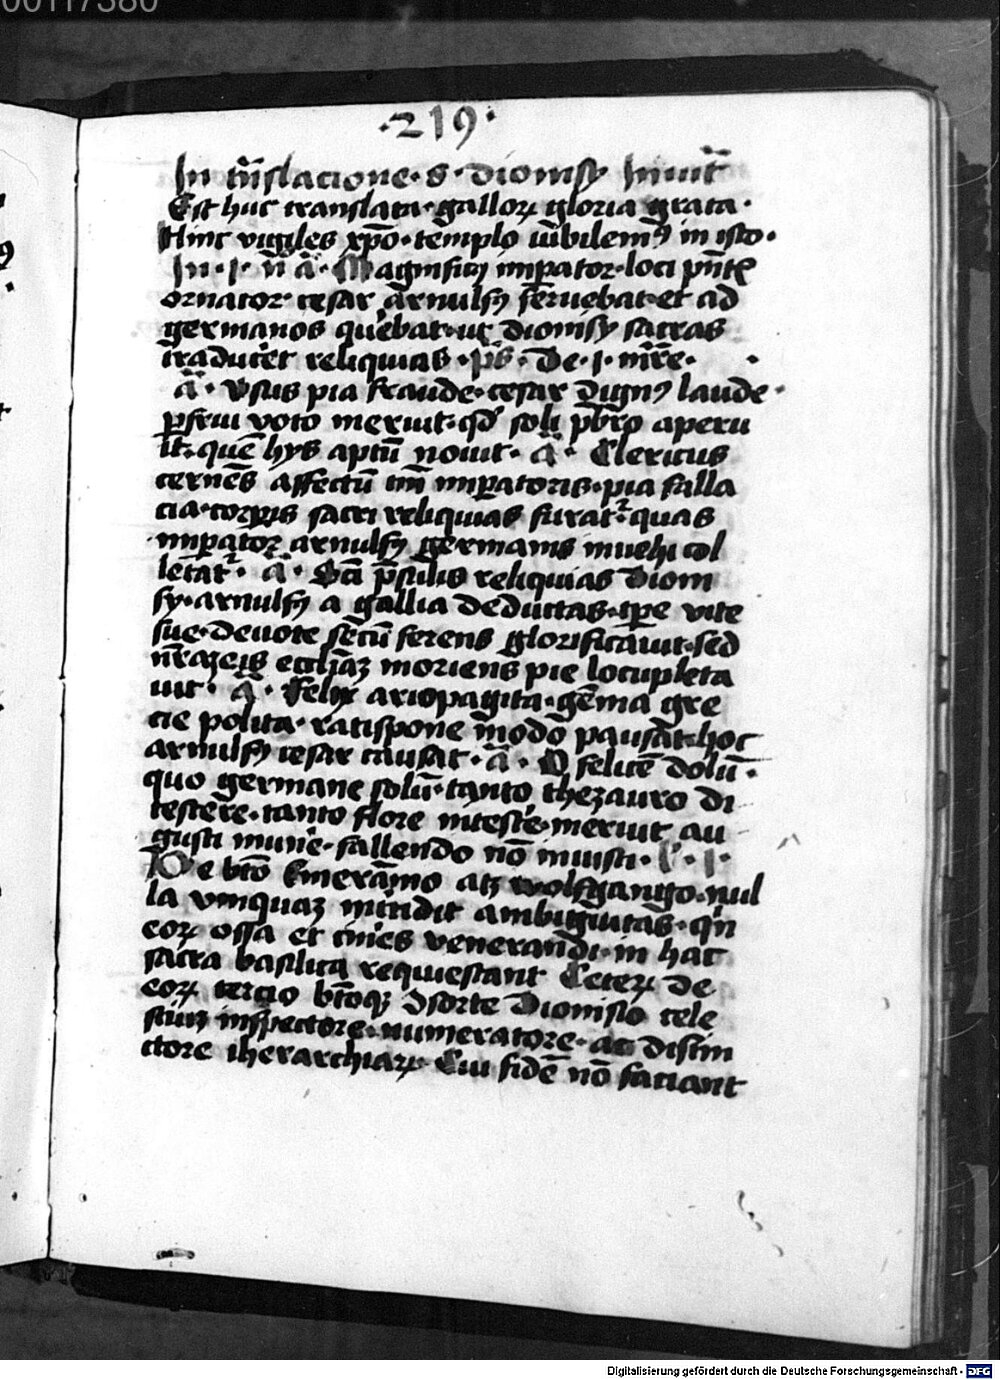 00117380
·219·
In tn̄slacione · s · dionisy Inuit̄
Est huc translata · gallorꝝ gloria grata ·
Hinc vigiles xp̄o · templo iubilemꝰ in isto ·
In · I · n̄ ā · Magnificꝰ imꝑator · loci pn̄tꝭ
ornator · cesar arnulfꝰ feruebat · et ad
germanos querebat · ut dionisy sacras
traduceret reliquias · ps̄ · De · I · mr̄e ·
ā · Vsus pia fraude · cesar dignꝰ laude ·
ꝑfrui voto meruit · qd̄ soli pb̄ro aperu
it · quē hys aptū nouit · ā · Clericus
cernēs affectū tm̄ imꝑatoris · pia falla
cia · corꝑis sacri reliquias furat᷑ · quas
imꝑator arnulfꝰ germanis inuehi col
letat᷑ · ā · Sc̄i p̄sulis reliquias Dioni
sy · arnulfꝰ a gallia deductas · tꝑe vite
sue · deuote secū ferens glorificauit · sed
eccl̄iaꝫ moriens pie locupleta
uit · ā · Felix ariopagita · gēma gre
cie polita · ratispone modo pausat · hoc
arnulfꝰ cesar causat · ā · O felicē dolū ·
quo germane solū · tanto thezauro di
tescere · tanto flore meruit au
gusti mune · fallendo nō iniusti · C · I ·
De bt̄o Emeramo atqꝫ wolfgango · nul
la vmquaꝫ incidit ambiguitas · qn̄
eorꝝ ossa et cineres venerandi · in hac
sacra basilica requiescant Ceterꝝ de
eorꝝ tercio bt̄oqꝫ ꝯsorte Dionisio cele
stiuꝫ inspectore · numeratore · ac distin
ctore iherarchiarꝝ · Cui fidē nō faciant
Digitalisierung gefördert durch die Deutsche Forschungsgemeinschaft - DFG